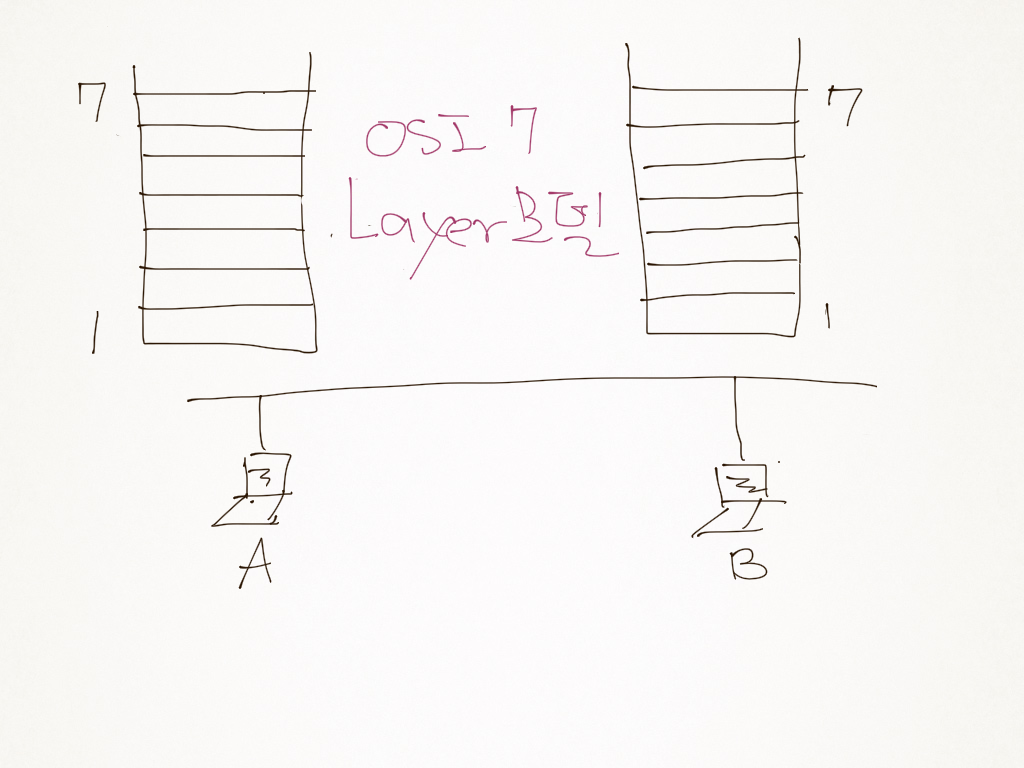 7
OSI 7
7
Layer 모델
1
1
A
B